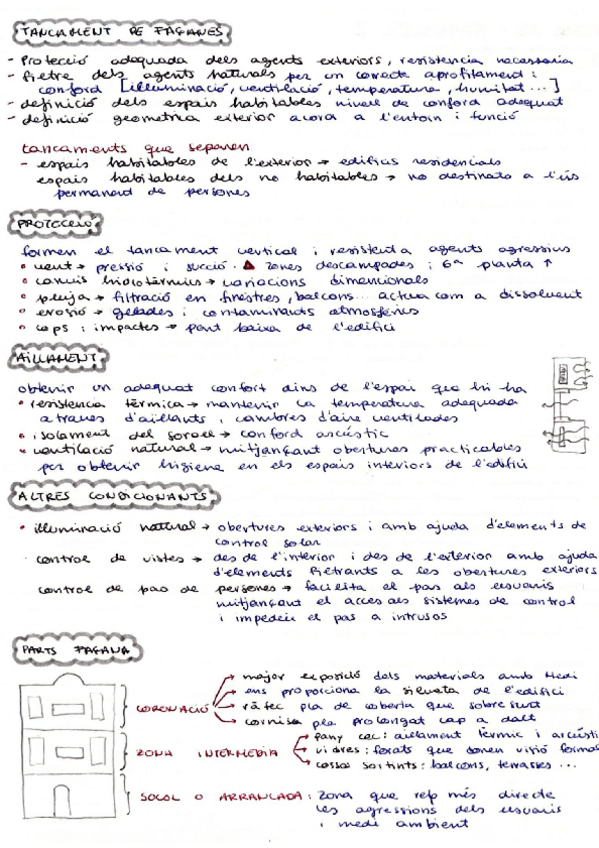 TANCAMENT DE FAÇANES
- Protecció adequada dels agents exteriors, resistencia necessaria
- Fietre dels agents naturals per un correcte aprofilament:
conford [illuminació, ventilació, temperatura, humitat ...]
- definició dels espais habitables nivell de conford adequat
- definició geometrica exterior acord a l'entorn i funció
tancaments que separen
- espais habitables de l'exterior → edificis residencials
espais habitables dels no habitables → no destinats a l'ús
permanent de persones
PROTECCIÓ
formen el tancament vertical i resistent a agents agressius
• vent → pressió i succió. zones descampades i 6ª planta ↑
• canvis hidrotèrmics → variacions dimencionals
• pluja → filtració en finestres, balcons... actua com a dissolvent
• erosió → gelades i contaminants atmosfèrics
• cops i impactes → part baixa de l'edifici
AÏLLAMENT
obtenir un adequat confort dins de l'espai que hi ha
• resistencia tèrmica → mantenir la temperatura adequada
a traves d'aïllants i cambres d'aire ventilades
• isolament del soroll → conford acústic
• ventilació natural → mitjançant obertures practicables
per obtenir higiene en els espais interiors de l'edifici
ALTRES CONDICIONANTS
• illuminació natural → obertures exteriors i amb ajuda d'elements de
control solar
control de vistes → des de l'interior i des de l'exterior amb ajuda
d'elements filtrants a les obertures exteriors
control de pas de persones → facilita el pas als usuaris
mitjançant el acces als sistemes de control
i impedeix el pas a intrusos
PARTS FAÇANA
CORONACIÓ
→ major exposició dels materials amb Medi
→ ens proporciona la silueta de l'edifici
→ ràfec pla de coberta que sobresurt
→ cornisa pla prolongat cap a dalt
ZONA INTERMEDIA
→ pany cec: aillament tèrmic i acústi
→ vidres: forats que donen visió formal
→ cossos sortints: balcons, terrasses ...
SOCOL O ARRANCADA: zona que rep més directe
les agressions dels usuaris
i medi ambient